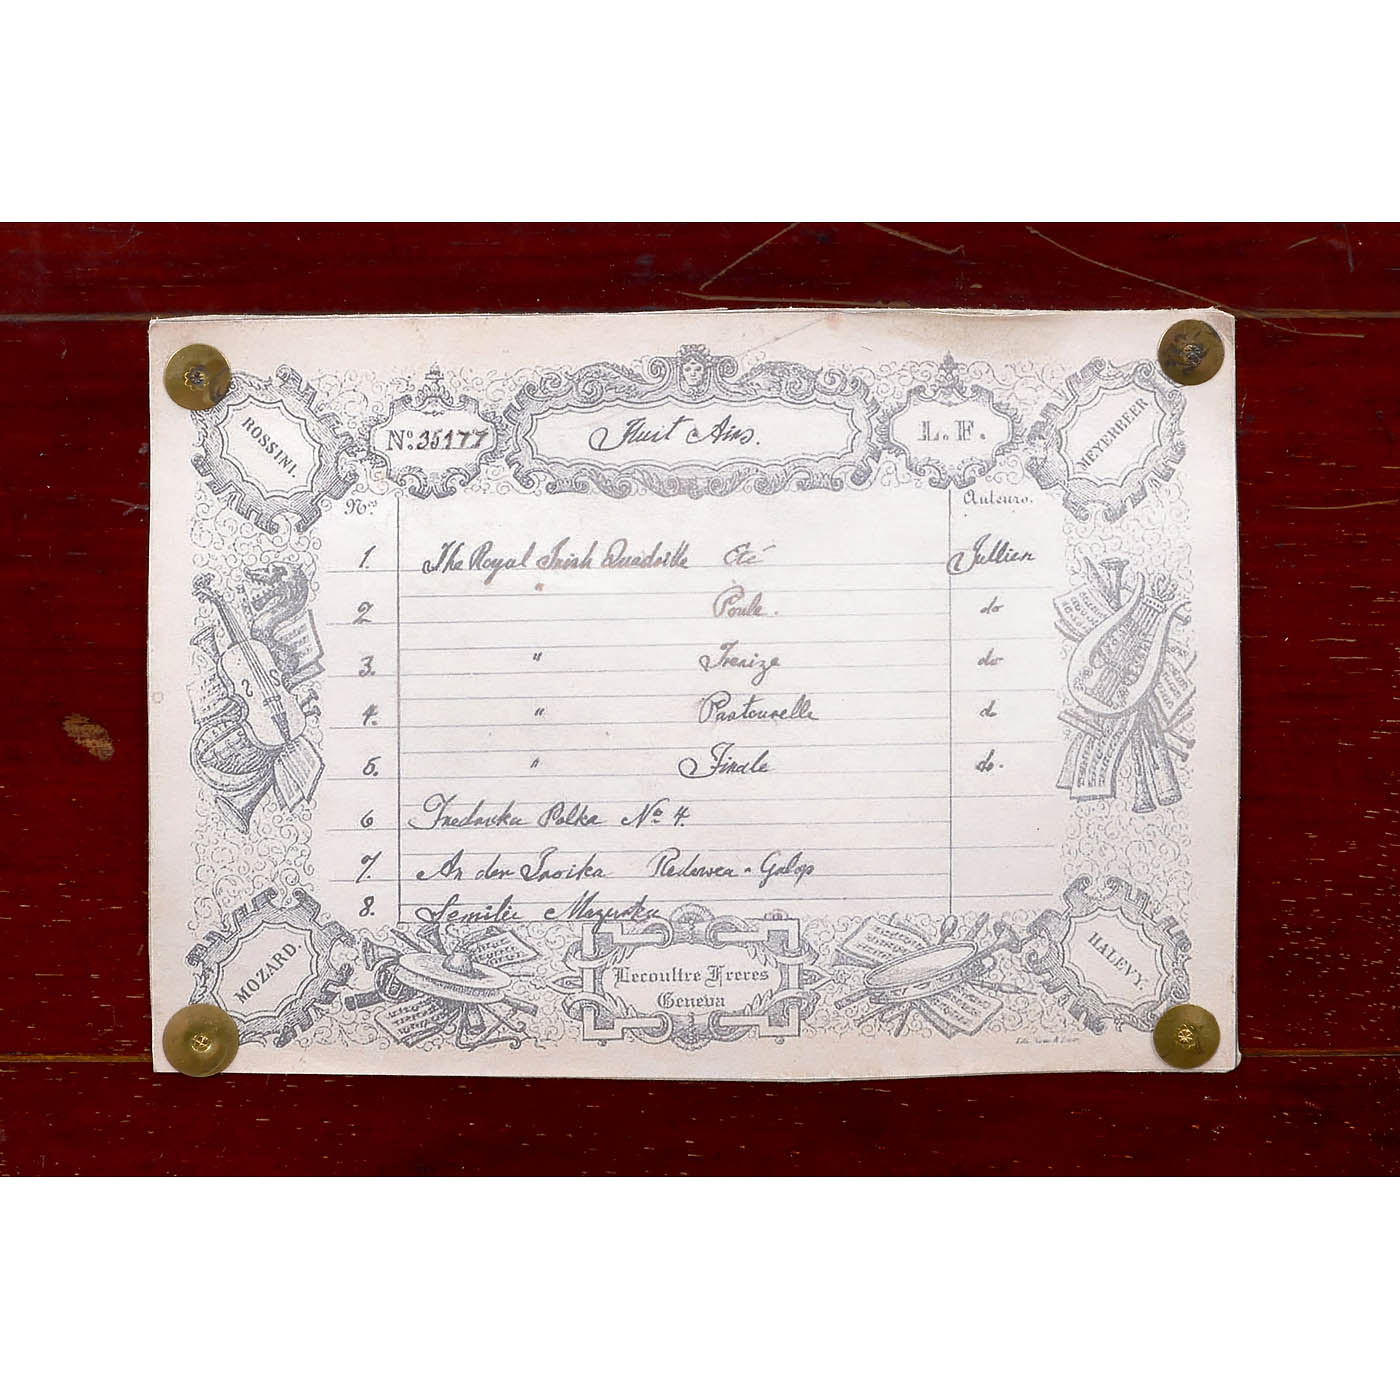 ROSSINI.
Nº. 35177
Huit Airs.
L. F.
MEYERBEER
Nos.
Auteurs.
1. The Royal Irish Quadrille Eté Jullien
2 " Poule. do
3. " Trenize do
4. " Pastourelle do
5. " Finale do.
6 Polka No 4.
7. An der Troika Redowa - Galop
8. Mazurka
MOZARD.
Lecoultre Freres
Geneva
HALEVY.